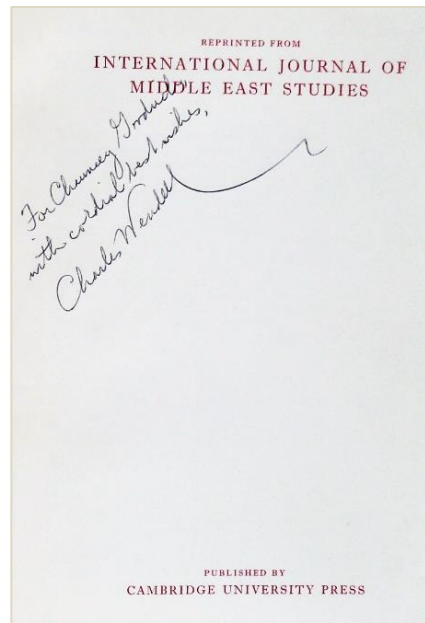 REPRINTED FROM
INTERNATIONAL JOURNAL OF
MIDDLE EAST STUDIES
For Chauncey Goodrich,
with cordial best wishes,
Charles Wendell
PUBLISHED BY
CAMBRIDGE UNIVERSITY PRESS